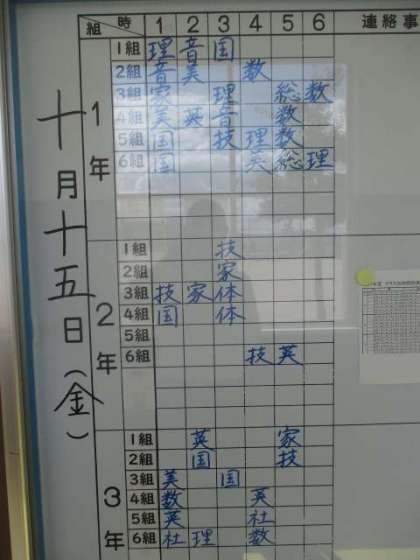 十月十五日(金)
組 時 1 2 3 4 5 6 連絡事
1年
1組 理 音 国
2組 音 美 数
3組 家 理 総 数
4組 美 英 音 数
5組 国 技 理 数
6組 国 英 総 理
2年
1組 技
2組 家
3組 技 家 体
4組 国 体
5組
6組 技 英
3年
1組 英 家
2組 国 技
3組 美 国
4組 数 英
5組 英 社
6組 社 理 数